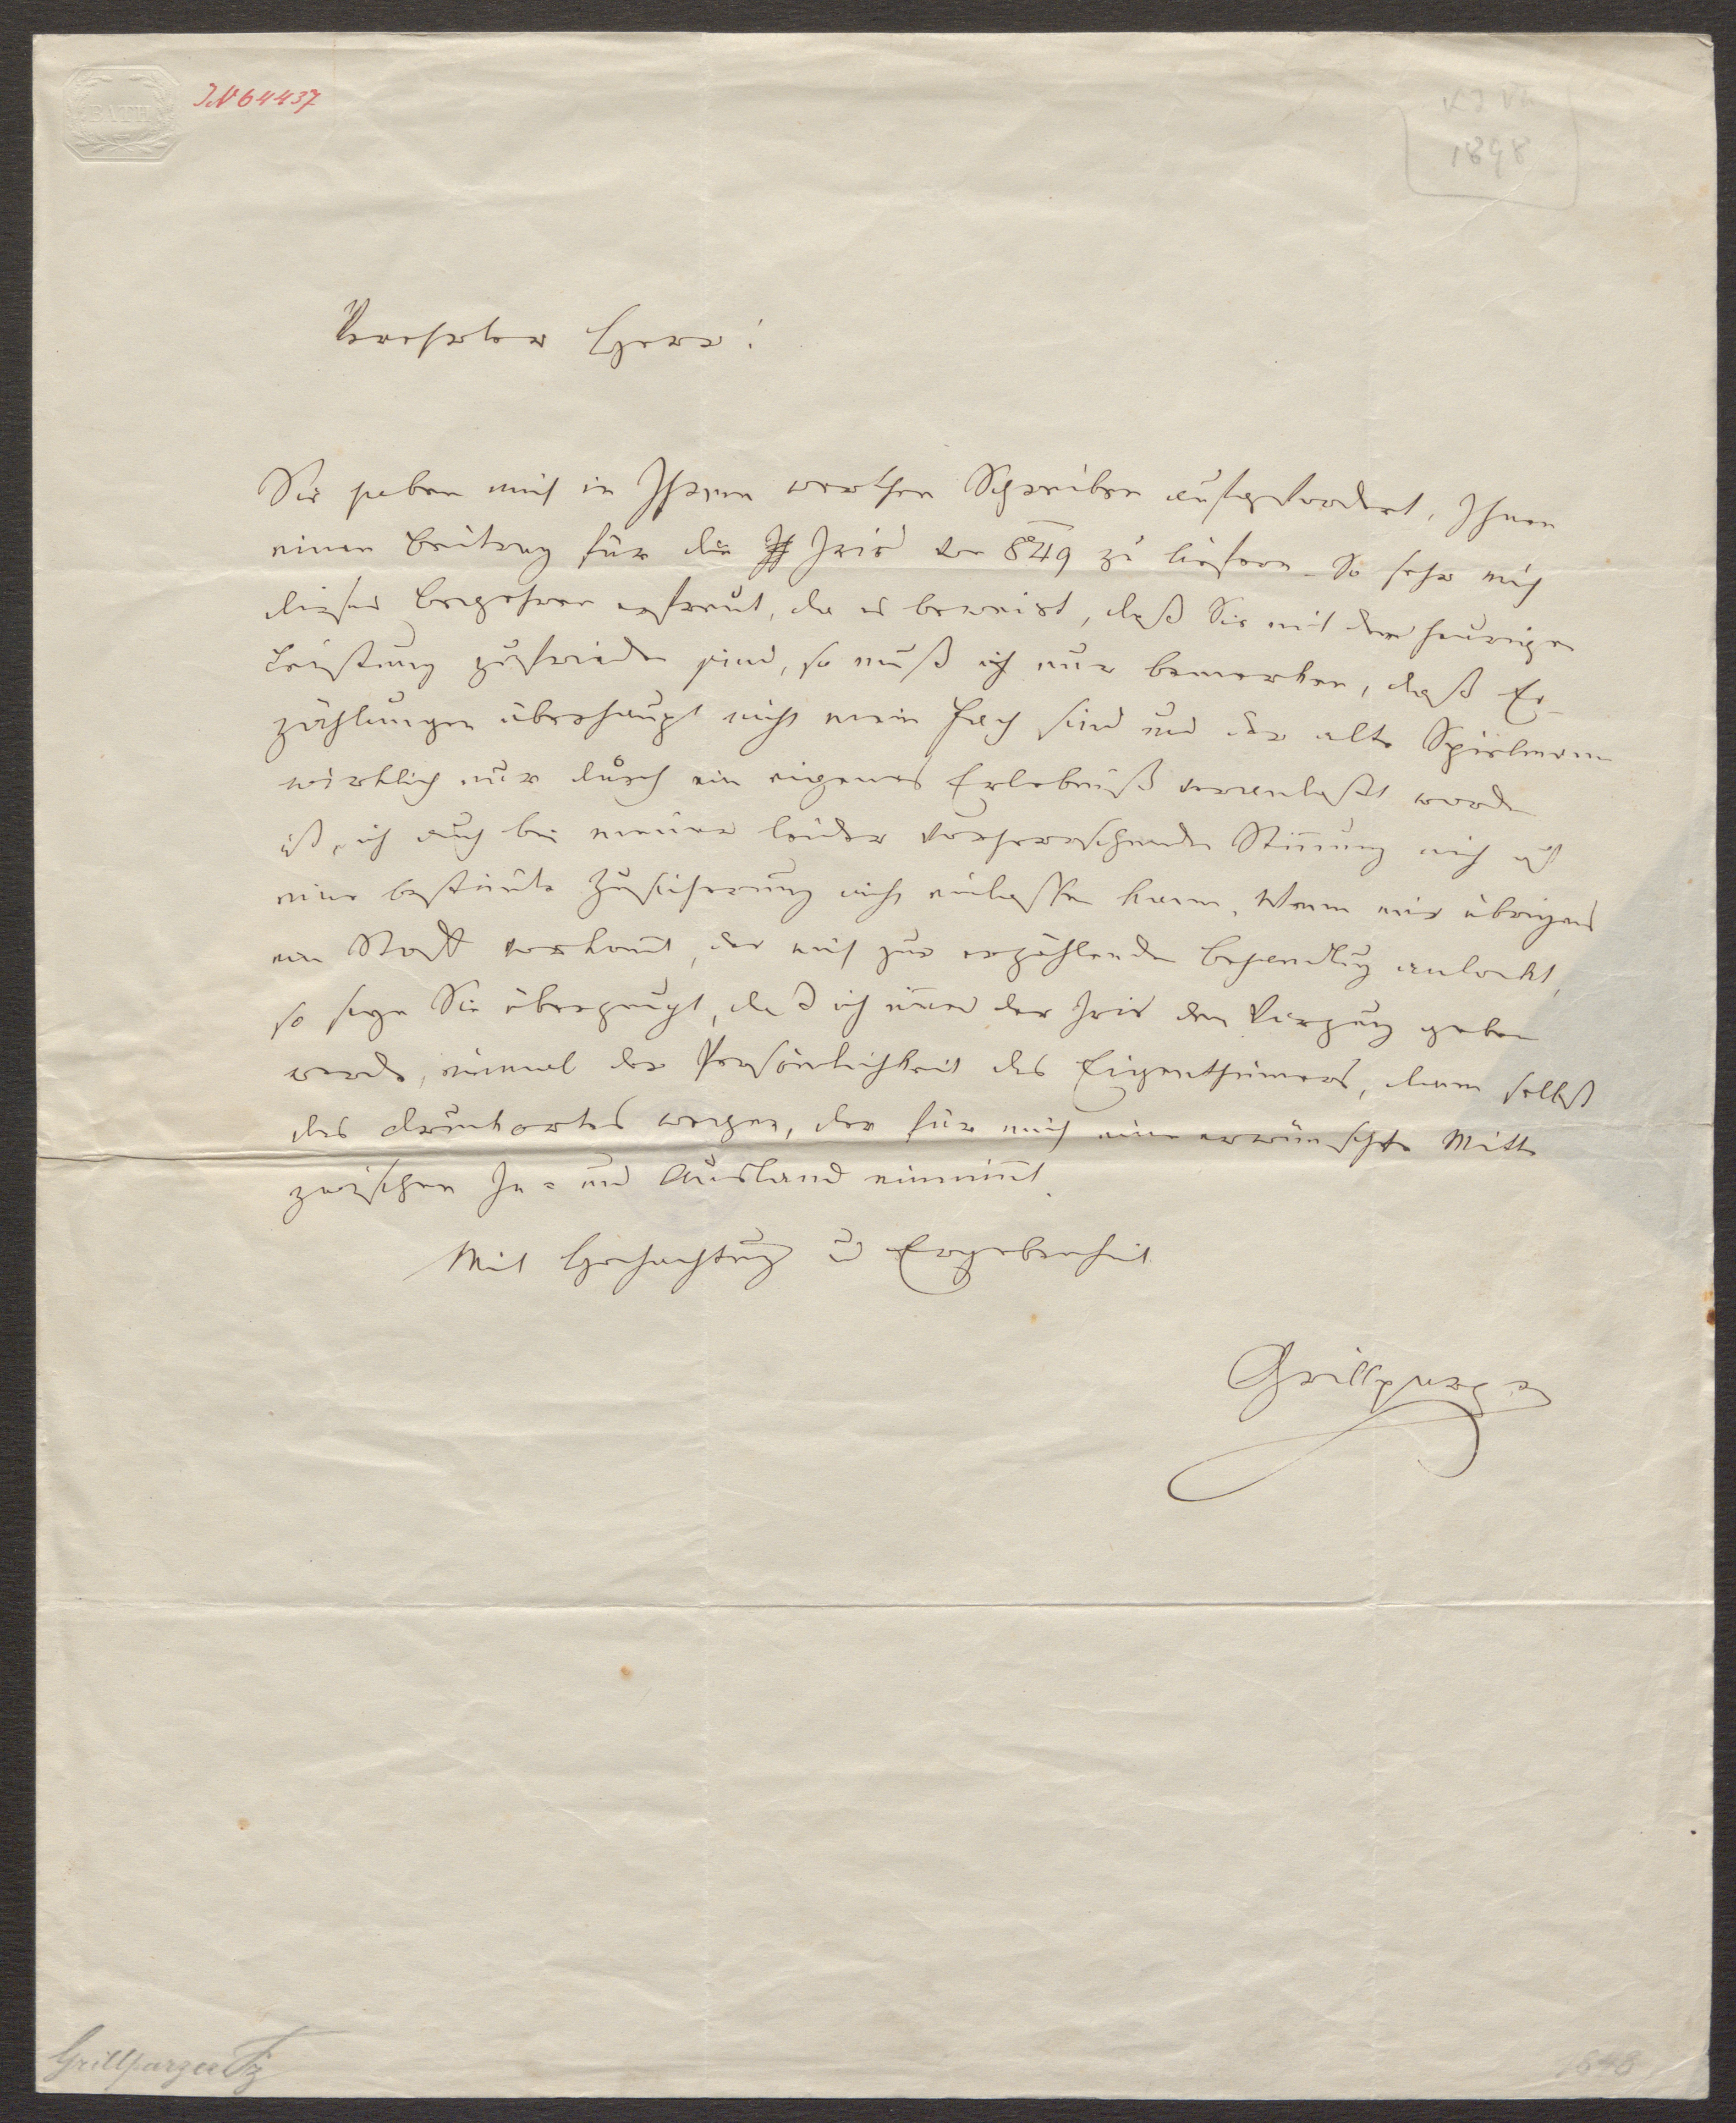 BATH
IN 64437
1848
Verehrter Herr!
Sie haben mich in Ihrem werthen Schreiben aufgefordert, Ihnen
einen Beitrag für die Iris von 849 zu liefern. So sehr mich
dieses Begehren erfreut, da es beweist, daß Sie mit der heurigen
Leistung zufrieden sind, so muß ich nur bemerken, daß Er-
zählungen überhaupt nicht mein Fach sind und der alte Spielmann
wirklich nur durch ein eigenes Erlebniß veranlaßt worden
ist, ich auch bei meiner leider vorherrschenden Stimmung mich auf
eine bestimte Zusicherung nicht einlassen kann. Wenn mir übrigens
ein Stoff vorkomt, der mich zur erzählenden Behandlung anlockt,
so seyn Sie überzeugt, daß ich immer der Iris den Vorzug geben
werde, einmal der Persönlichkeit des Eigenthümers, dann selbst
des Druckortes wegen, der für mich eine erwünschte Mitte
zwischen In- und Ausland einnimt.
Mit Hochachtung u Ergebenheit
Grillparzer
Grillparzer Fz
1848